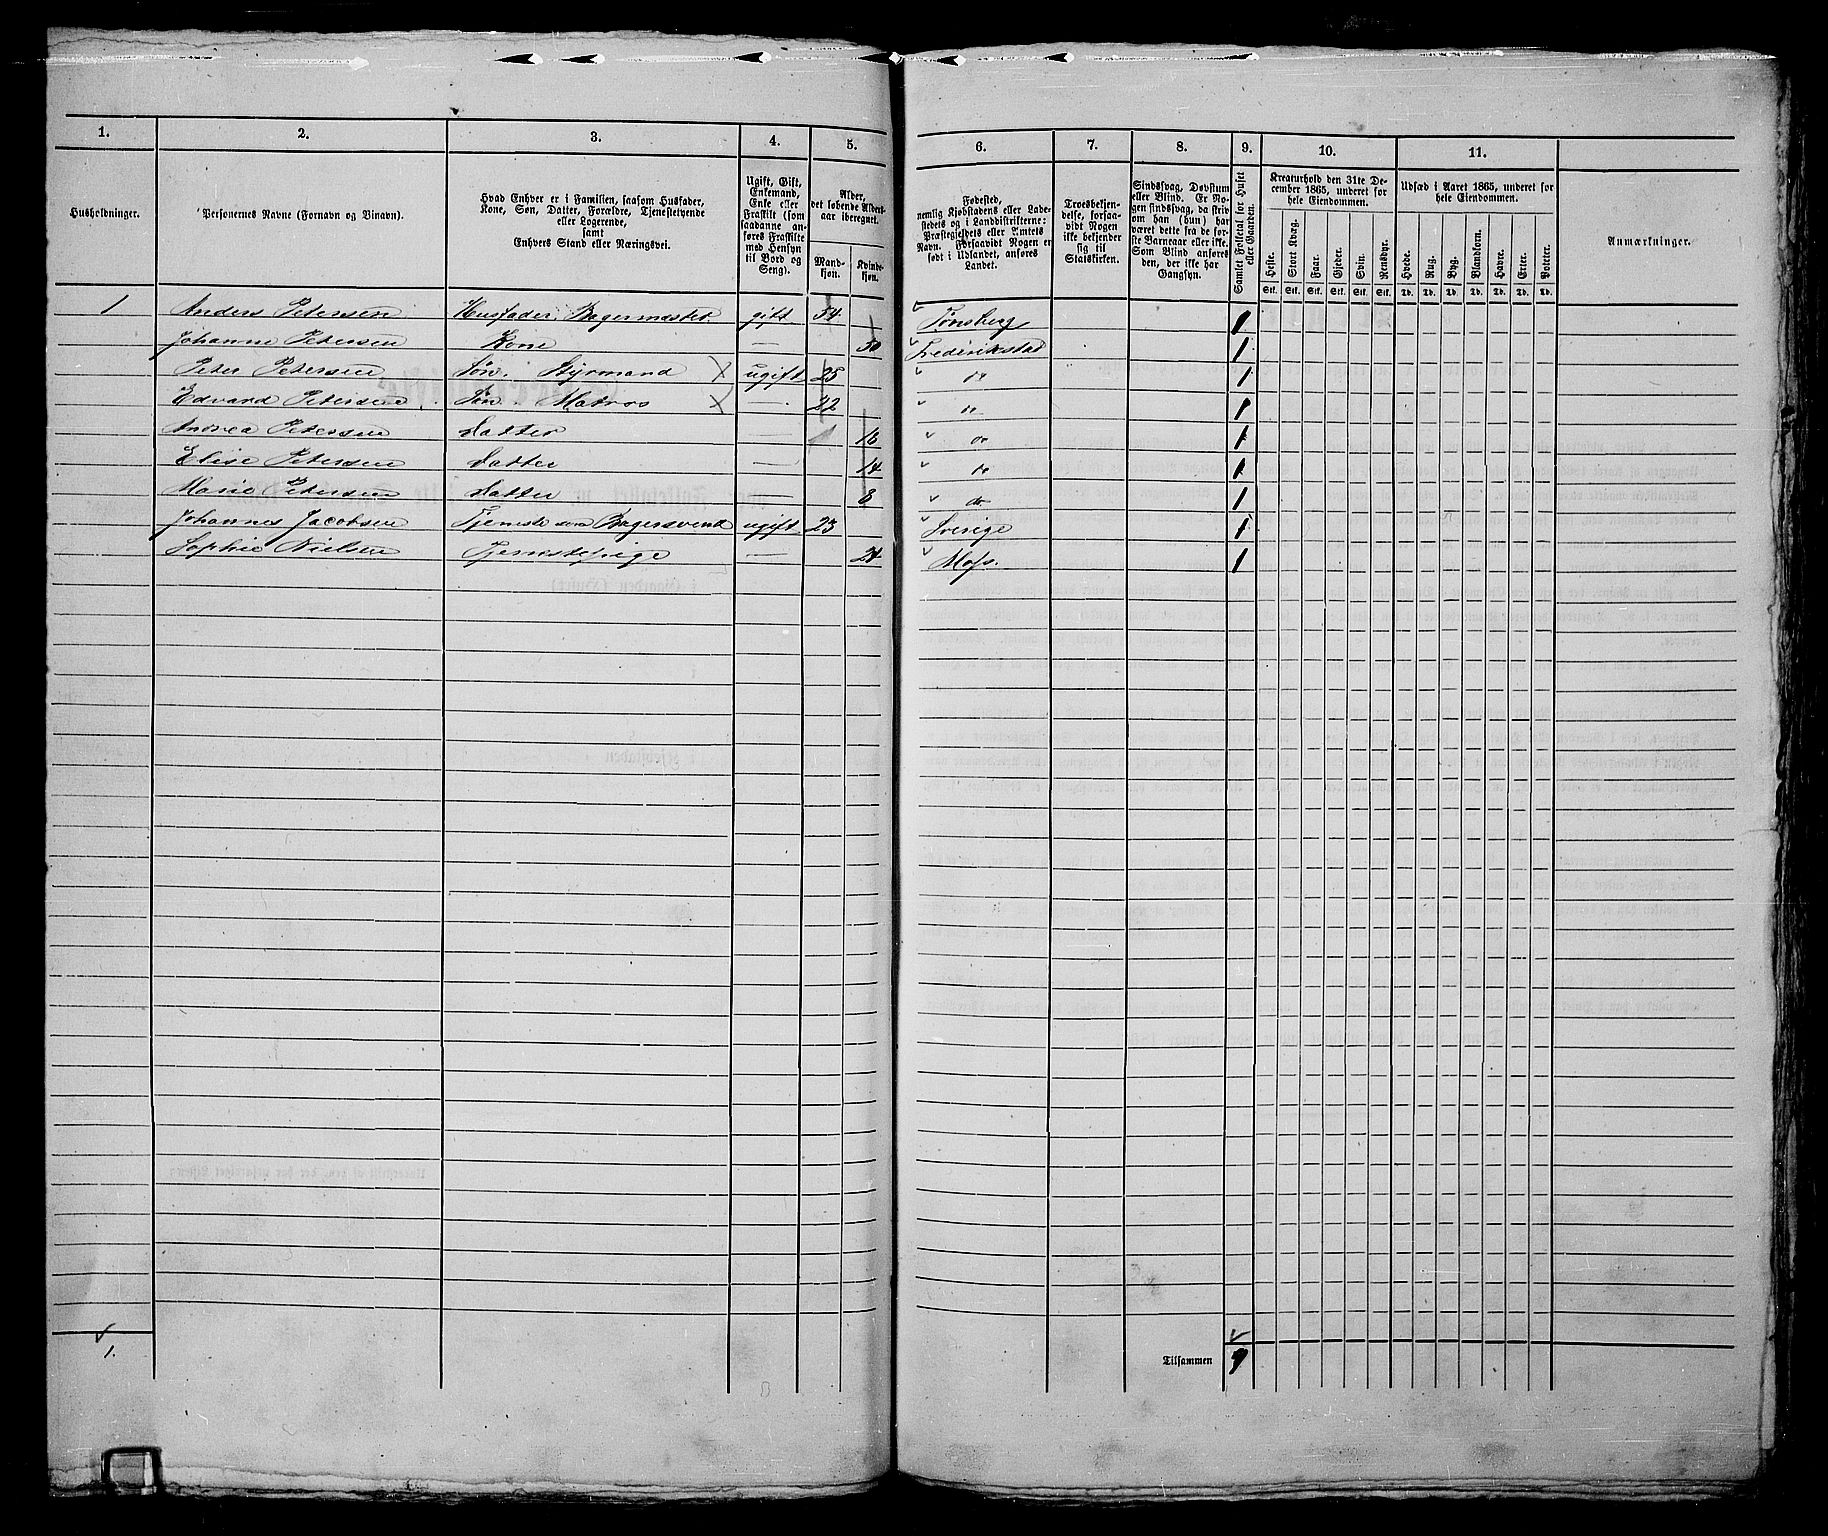 1. 2. 3. 4. 5. 6. 7. 8. 9. 10. 11.
Husholdninger.
Personernes Navne (Fornavn og Binavn).
Hvad Enhver er i Familien, saasom Husfader,
Kone, Søn, Datter, Forældre, Tjenestetyende
eller Logerende,
samt
Enhvers Stand eller Næringsvei.
Ugift, Gift,
Enkemand,
Enke eller
Fraskilt (som
saadanne an-
føres Fraskilte
med Hensyn
til Bord og
Seng).
Alder,
det løbende Alders-
aar iberegnet.
Mand-
kjøn.
Kvinde-
kjøn.
Fødested,
nemlig Kjøbstadens eller Lade-
stedets og i Landdistrikterne:
Præstegjeldets eller Amtets
Navn. Forsaavidt Nogen er
født i Udlandet, anføres
Landet.
Troesbekjen-
delse, forsaa-
vidt Nogen
ikke bekjender
sig til
Statskirken.
Sindssvag, Døvstum
eller Blind. Er No-
gen sindssvag, da skriv
om han (hun) har
været dette fra de før-
ste Barneaar eller ikke.
Som Blind anføres
den, der ikke har
Gangsyn.
Samlet Folketal for Huset
eller Gaarden.
Kreaturhold den 31te De-
cember 1865, underet for
hele Eiendommen.
Heste. Stort Kvæg. Faar. Gjeder. Svin. Rensdyr.
Stk. Stk. Stk. Stk. Stk. Stk.
Udsæd i Aaret 1865, underet for
hele Eiendommen.
Hvede. Rug. Byg. Blandkorn. Havre. Erter. Poteter.
Td. Td. Td. Td. Td. Td. Td.
Anmærkninger.
1 Anders Petersen Husfader, Bagermester gift 54 Tønsberg 1
Johanne Petersen Kone — 50 Frederikstad 1
Peter Petersen Søn. Styrmand ugift 25 do 1
Edvard Petersen Søn. Matros — 22 do 1
Andrea Petersen Datter — 18 do 1
Elise Petersen Datter — 14 do 1
Marie Petersen Datter — 8 do 1
Johannes Jacobsen Tjeneste som Bagersvend ugift 23 Sverige 1
Sophie Nielsen Tjenestepige — 24 Moss. 1
1.
Tilsammen 9